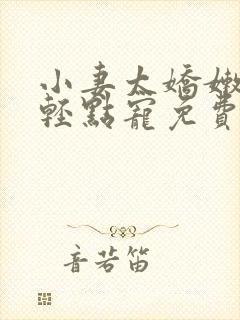 小妻太嬌嫩
輕點寵免費
音若笛